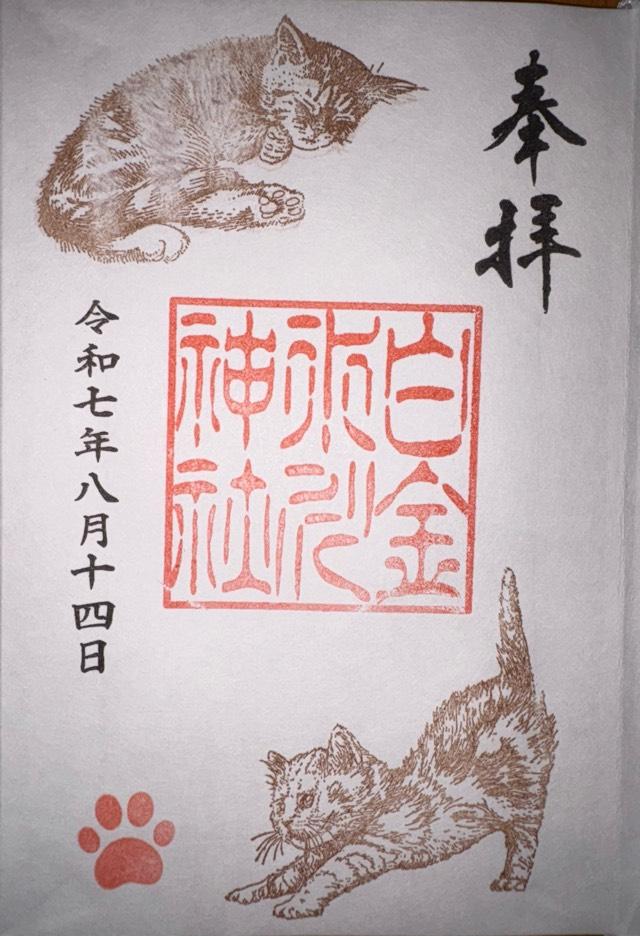 奉拝
白金
氷川
神社
令和七年八月十四日